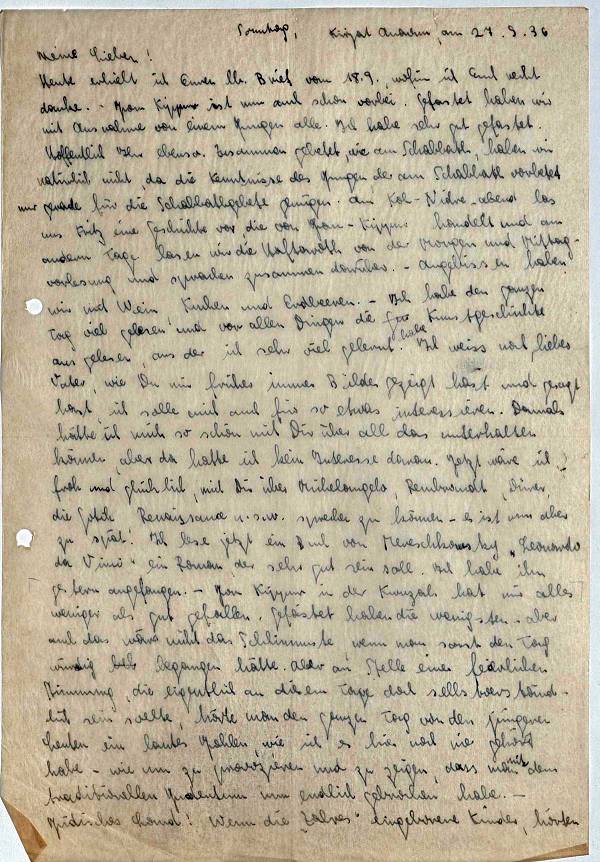 Sonntag, Kirjat Anavim, am 27.9.36
Meine Lieben!
Heute erhielt ich Euren lb. Brief vom 18.9., wofür ich Euch recht
danke. - Jom Kippur ist nun auch schon vorbei. Gefastet haben wir
mit Ausnahme von einem Jungen alle. Ich habe sehr gut gefastet.
Hoffentlich Ihr ebenso. Zusammen gebetet, wie am Schabbath, haben wir
natürlich nicht, da die Kenntnisse des Jungen der am Schabbath vorbetet
nur gerade für die Schabbathgebete genügen. Am Kol-Nidre-abend las
uns Fritz eine Geschichte vor die von Jom-Kippur handelt und am
andern Tage lasen wir die Haftaroth von der Morgen und Mittag-
vorlesung und sprachen zusammen darüber. - Angebissen haben
wir mit Wein Kuchen und Erdbeeren. - Ich habe den ganzen
Tag viel gelesen und vor allen Dingen die Kunstgeschichte
aus gelesen, aus der ich sehr viel gelernt habe. Ich weiss noch lieber
Vater, wie Du mir früher immer Bilder gezeigt hast und gesagt
hast, ich solle mich auch für so etwas interessieren. Damals
hätte ich mich so schön mit Dir über all das unterhalten
können, aber da hatte ich kein Interesse daran. Jetzt wäre ich
froh und glücklich, mit Dir über Michelangelo, Rembrandt, Dürer,
die Gotik, Renaissance u.s.w. sprechen zu können - es ist nun aber
zu spät! Ich lese jetzt ein Buch von Mereschkowsky „Leonardo
da Vinci" ein Roman der sehr gut sein soll. Ich habe ihn
gestern angefangen. - Jom Kippur in der Kwuzah hat mir alles
weniger als gut gefallen. Gefastet haben die wenigsten - aber
auch das wäre nicht das Schlimmste wenn man sonst den Tag
würdig begangen hätte. Aber an Stelle einer feierlichen
Stimmung, die eigentlich an diesem Tage doch selbstverständ-
lich sein sollte, hörte man den ganzen Tag von den jüngeren
Leuten ein lautes wie ich es hier noch nie gehört
habe - wie um zu provozieren und zu zeigen, dass man mit dem
traditionellen Judentum nun endlich gebrochen habe. -
Jüdisches Land! Wenn die eingeborene Kinder, hörten